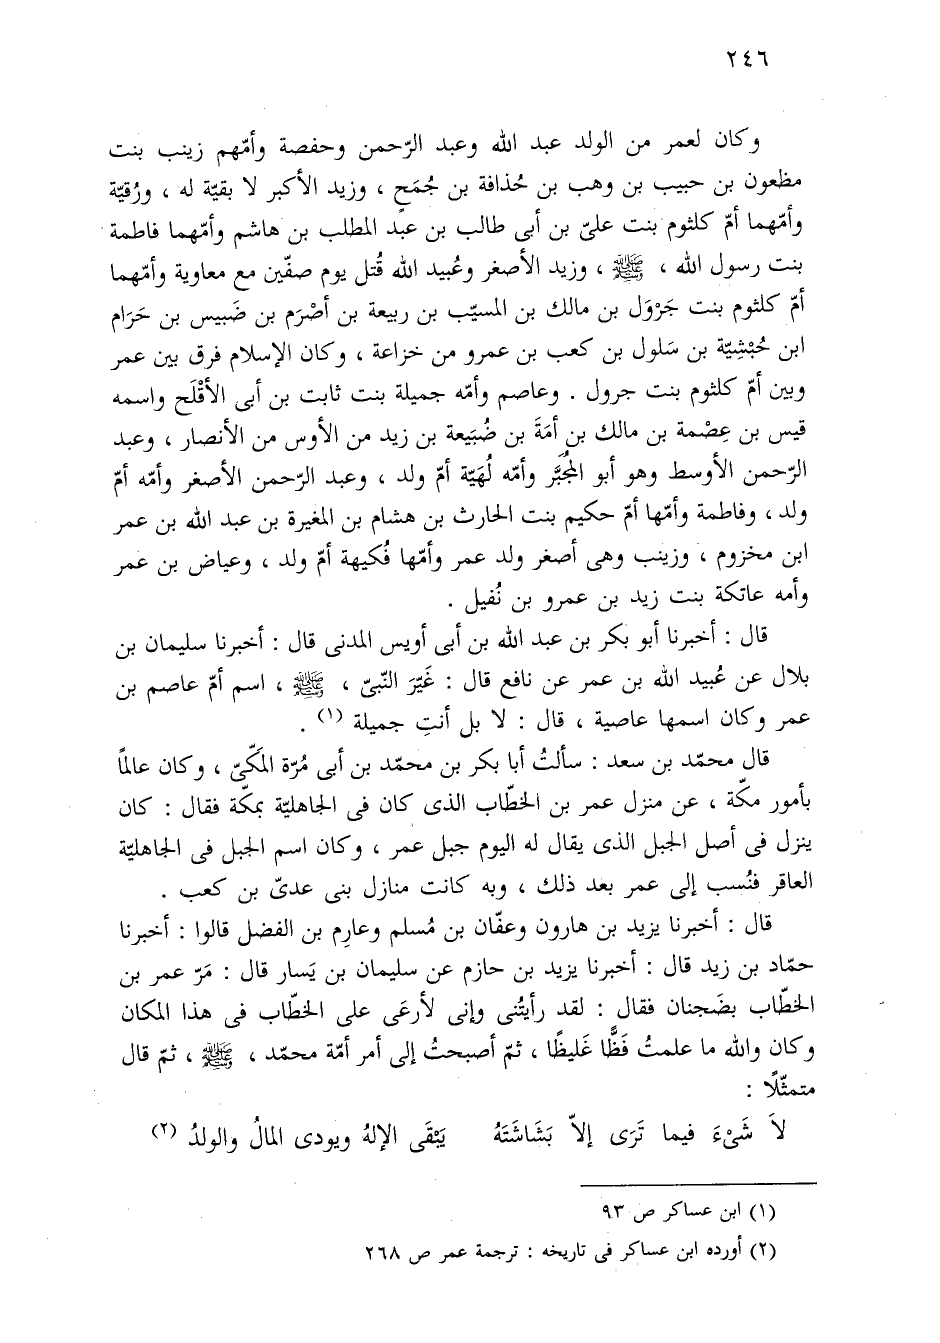 ٢٤٦
وكان لعمر من الولد عبد الله وعبد الرّحمن وحفصة وأمّهم زينب بنت
مظعون بن حبيب بن وهب بن حُذافة بن جُمَحٍ ، وزيد الأكبر لا بقيّة له ، ورُقيّة
وأمّهما أمّ كلثوم بنت علىّ بن أبى طالب بن عبد المطلب بن هاشم وأمّهما فاطمة
بنت رسول الله ، ﷺ ، وزيد الأصغر وعُبيد الله قُتل يوم صفّين مع معاوية وأمّهما
أمّ كلثوم بنت جَرْوَل بن مالك بن المسيّب بن ربيعة بن أصْرَم بن ضَبيس بن حَرَام
ابن حُبْشِيّة بن سَلول بن كعب بن عمرو من خزاعة ، وكان الإسلام فرق بين عمر
وبين أمّ كلثوم بنت جرول . وعاصم وأمّه جميلة بنت ثابت بن أبى الأقْلَح واسمه
قيس بن عِصْمة بن مالك بن أمَةَ بن ضُبَيعة بن زيد من الأوس من الأنصار ، وعبد
الرّحمن الأوسط وهو أبو المُجَبَّر وأمّه لُهَيّة أمّ ولد ، وعبد الرّحمن الأصغر وأمّه أمّ
ولد ، وفاطمة وأمّها أمّ حكيم بنت الحارث بن هشام بن المغيرة بن عبد الله بن عمر
ابن مخزوم ، وزينب وهى أصغر ولد عمر وأمّها فُكيهة أمّ ولد ، وعياض بن عمر
وأمه عاتكة بنت زيد بن عمرو بن نُفيل .
قال : أخبرنا أبو بكر بن عبد الله بن أبى أويس المدنى قال : أخبرنا سليمان بن
بلال عن عُبيد الله بن عمر عن نافع قال : غَيّرَ النّبىّ ، ﷺ ، اسم أمّ عاصم بن
عمر وكان اسمها عاصية ، قال : لا بل أنتِ جميلة (١) .
قال محمّد بن سعد : سألتُ أبا بكر بن محمّد بن أبى مُرّة المَكّىّ ، وكان عالماً
بأمور مكّة ، عن منزل عمر بن الخطّاب الذى كان فى الجاهليّة بمكّة فقال : كان
ينزل فى أصل الجبل الذى يقال له اليوم جبل عمر ، وكان اسم الجبل فى الجاهليّة
العاقر فنُسب إلى عمر بعد ذلك ، وبه كانت منازل بنى عدىّ بن كعب .
قال : أخبرنا يزيد بن هارون وعفّان بن مُسلم وعارِم بن الفضل قالوا : أخبرنا
حمّاد بن زيد قال : أخبرنا يزيد بن حازم عن سليمان بن يَسار قال : مَرّ عمر بن
الخطّاب بضَجنان فقال : لقد رأيتُنى وإنى لأرعَى على الخطّاب فى هذا المكان
وكان والله ما علمتُ فَظًّا غَليظًا ، ثمّ أصبحتُ إلى أمر أمّة محمّد ، ﷺ ، ثمّ قال
متمثّلًا :
لاَ شَىْءَ فيما تَرَى إلاّ بَشَاشَتَهُ يَبْقَى الإلهُ ويودى المالُ والولدُ (٢)
(١) ابن عساكر ص ٩٣
(٢) أورده ابن عساكر فى تاريخه : ترجمة عمر ص ٢٦٨